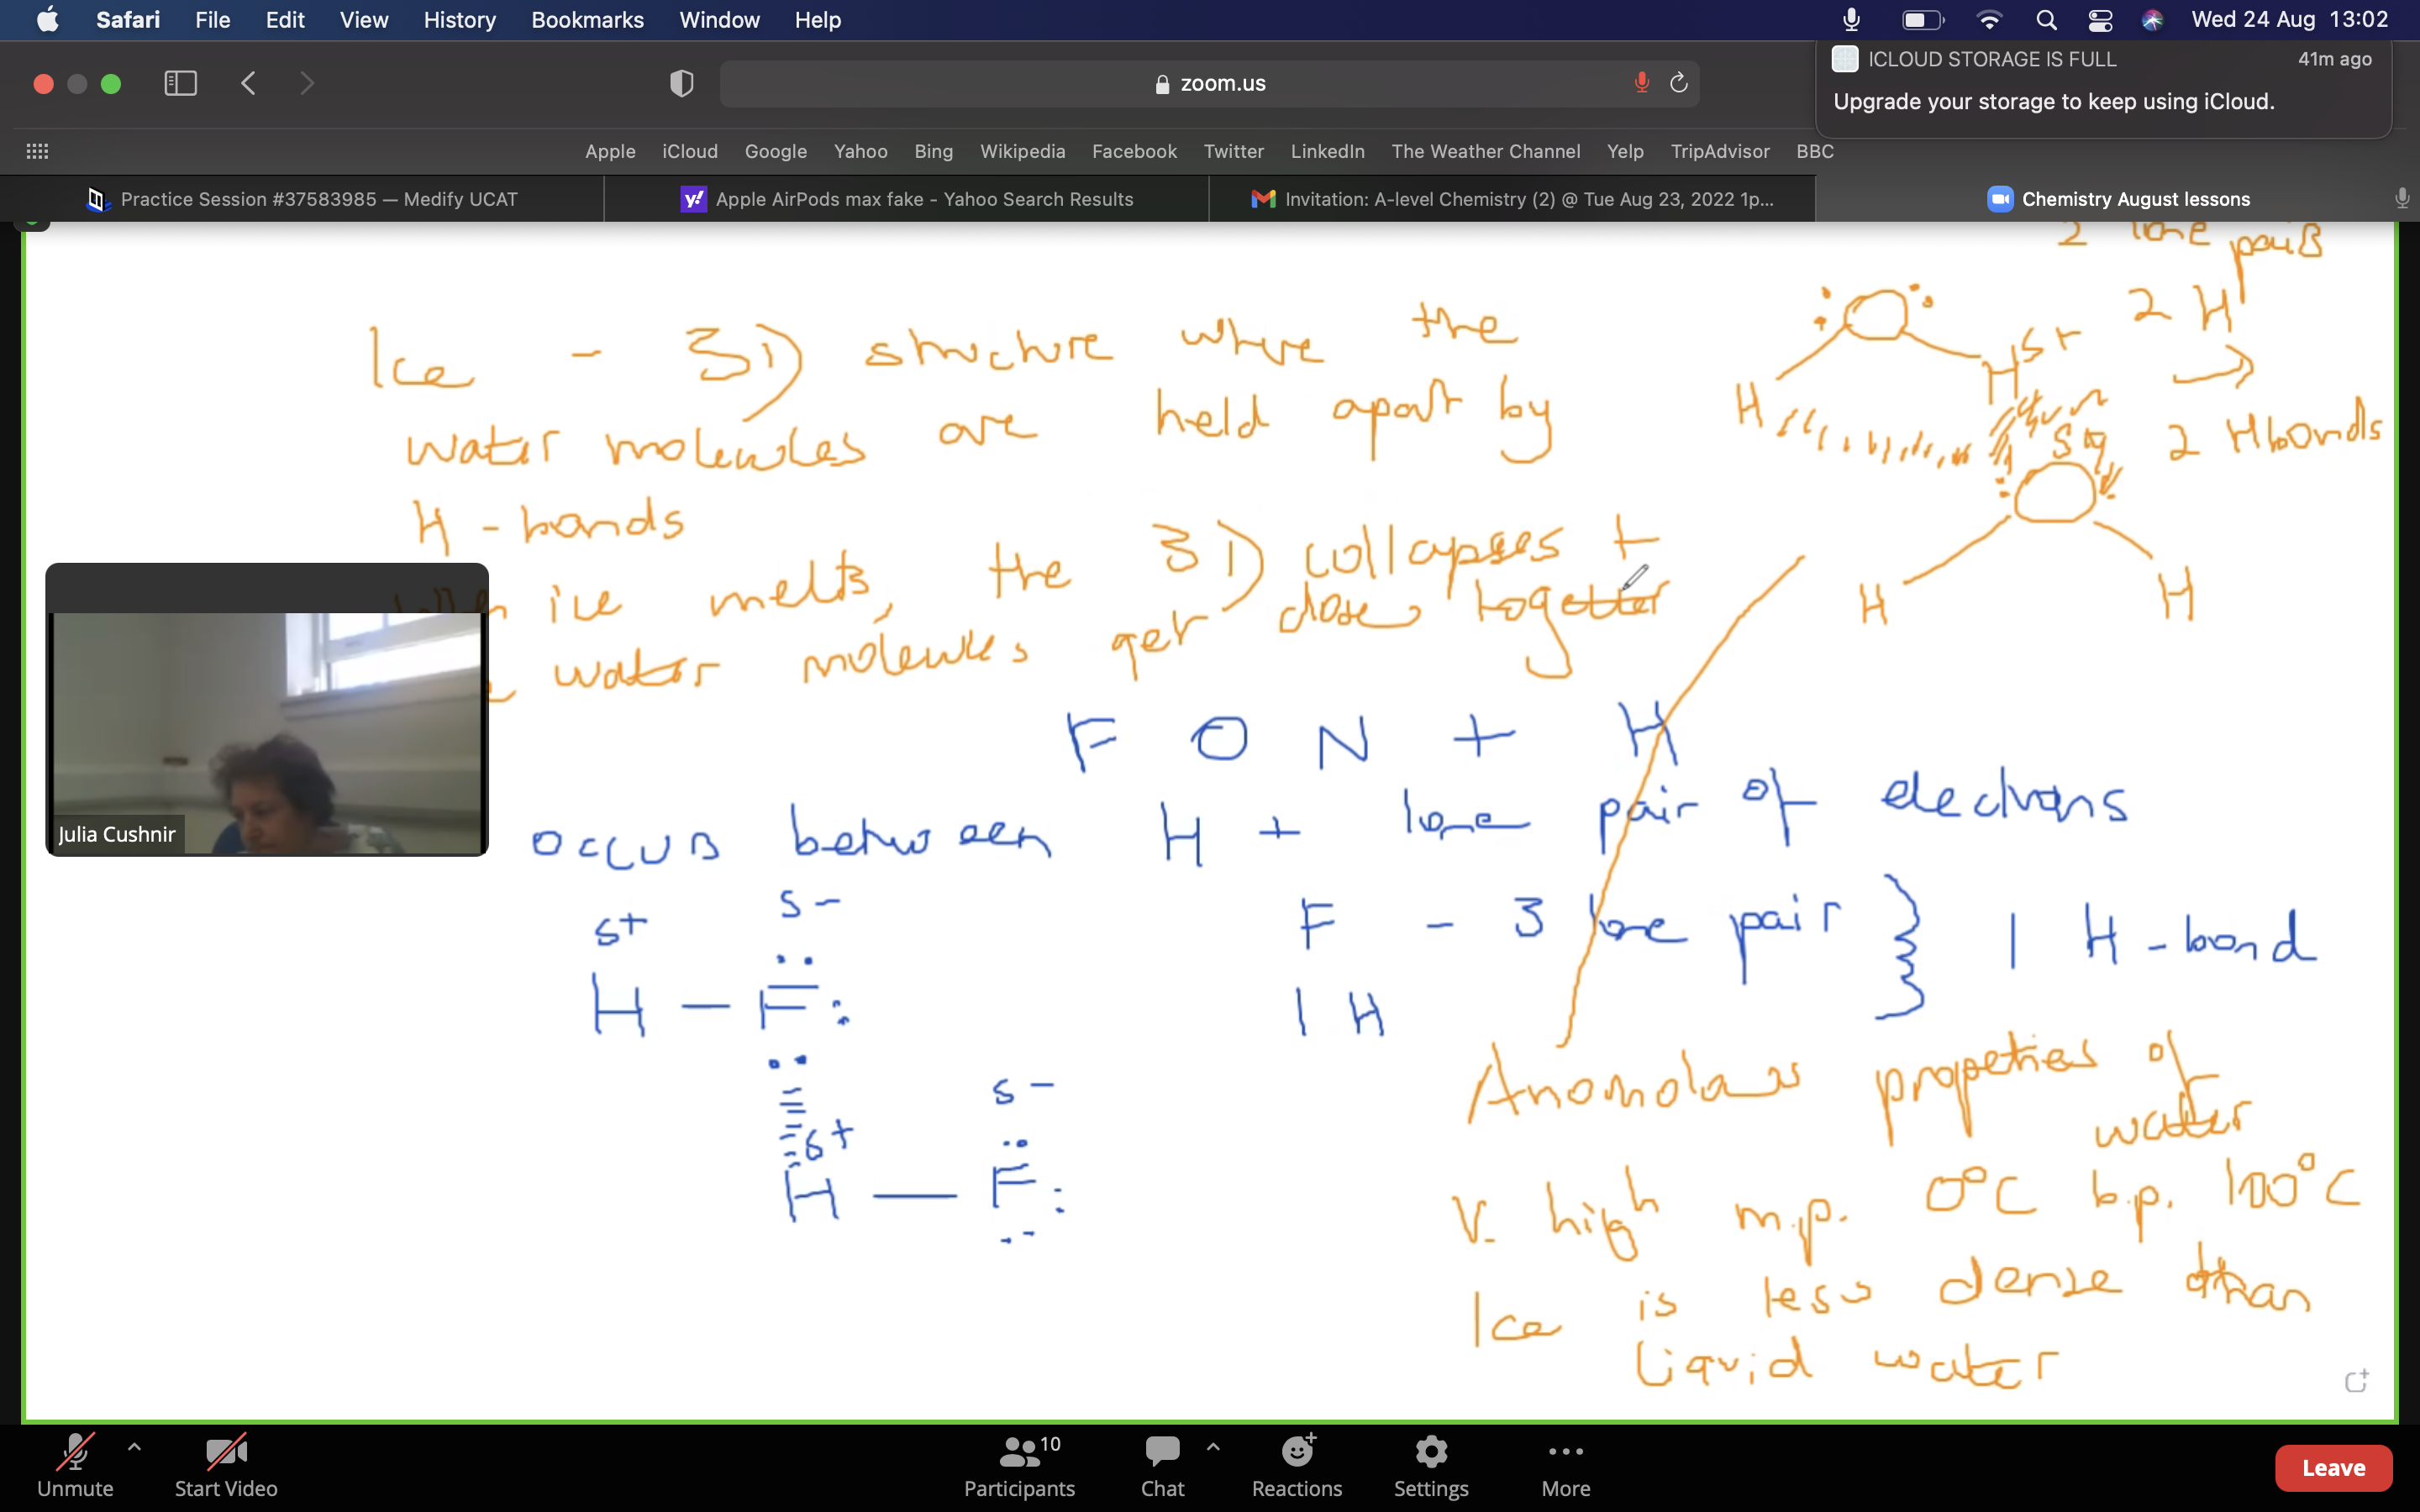 Safari File Edit View History Bookmarks Window Help Wed 24 Aug 13:02
zoom.us
ICLOUD STORAGE IS FULL 41m ago
Upgrade your storage to keep using iCloud.
Apple iCloud Google Yahoo Bing Wikipedia Facebook Twitter LinkedIn The Weather Channel Yelp TripAdvisor BBC
Practice Session #37583985 — Medify UCAT
Apple AirPods max fake - Yahoo Search Results
Invitation: A-level Chemistry (2) @ Tue Aug 23, 2022 1p...
Chemistry August lessons
2 lone pairs
2 H
→
2 H bonds
Ice - 3D structure where the
water molecules are held apart by
H - bonds
ice melts, the 3D collapses +
water molecules get close together
H H δ+
δ-
H H
F O N + H
occurs between H + lone pair of electrons
δ+ δ-
H — F
δ+ δ-
H — F
F - 3 lone pair } 1 H - bond
1 H
Anomolous propeties of
water
V. high m.p. 0°C b.p. 100°C
Ice is less dense than
liquid water
Julia Cushnir
Unmute
Start Video
10
Participants
Chat
Reactions
Settings
More
Leave